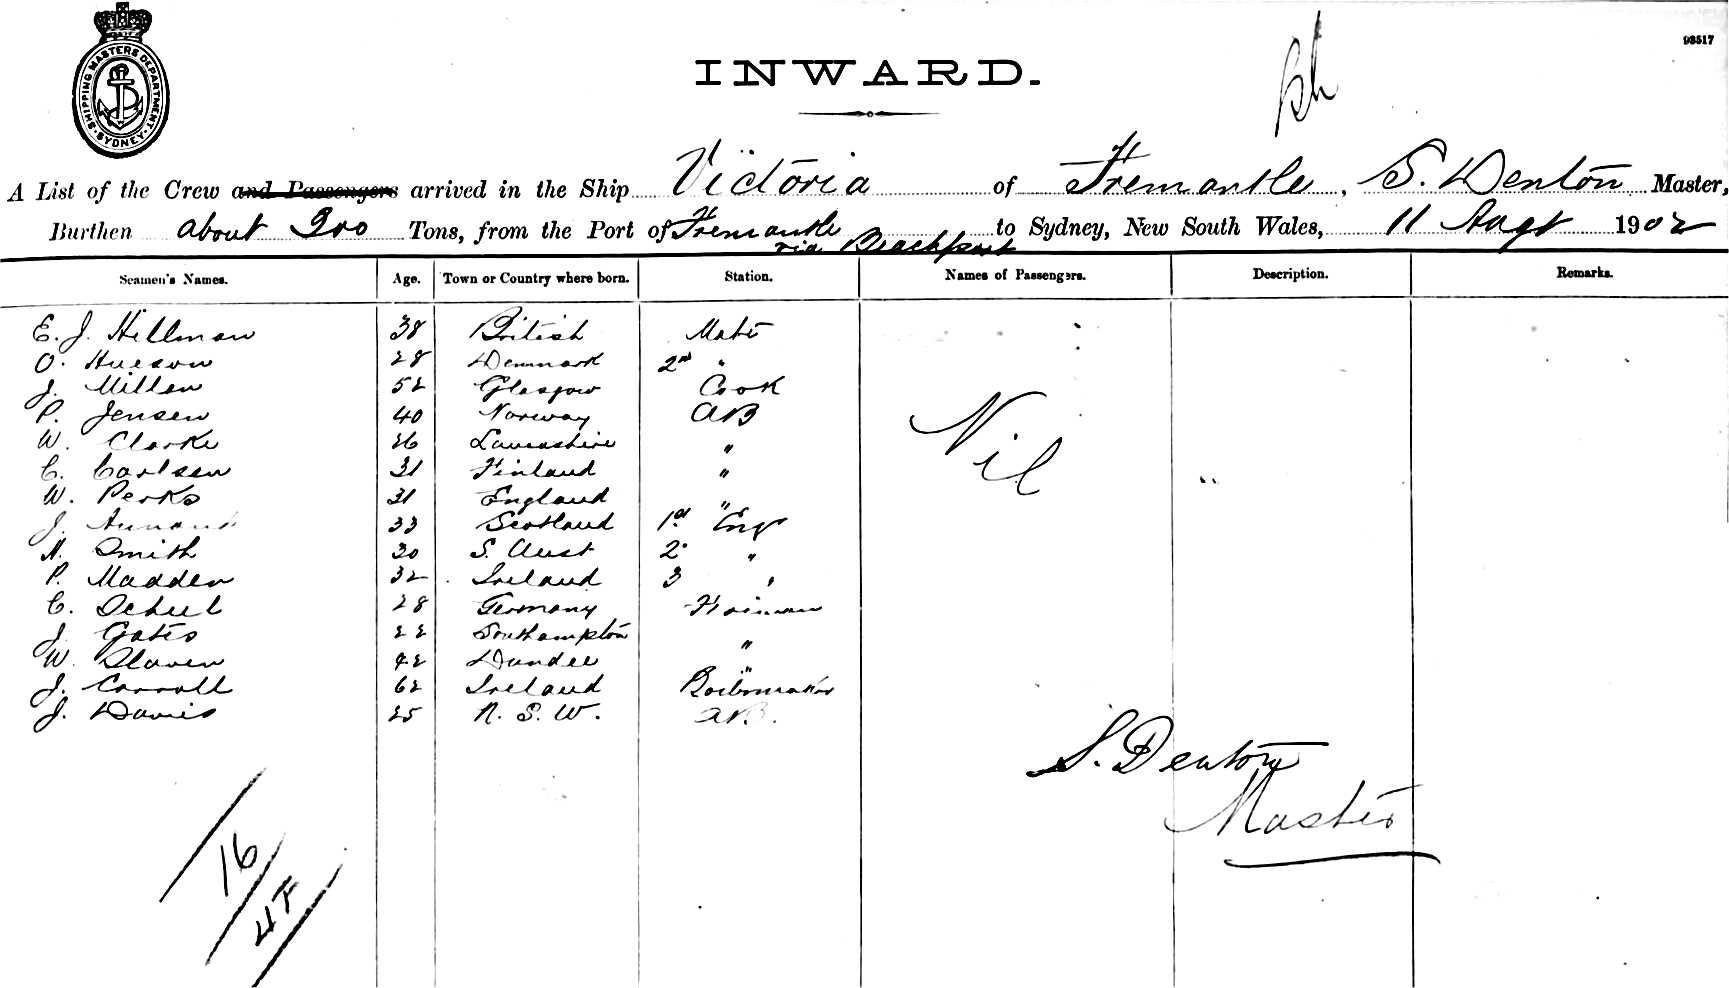 SHIPPING MASTERS DEPARTMENT SYDNEY
93517
INWARD.
A List of the Crew and Passengers arrived in the Ship Victoria of Fremantle, S. Denton Master,
Burthen about 300 Tons, from the Port of Fremantle to Sydney, New South Wales, 11 Augt 1902
via Beachport
Seamen's Names. Age. Town or Country where born. Station. Names of Passengers. Description. Remarks.
E. J. Hillman 38 British Mate
O. 28 Denmark 2nd "
J. Millen 52 Glasgow Cook
P. Jensen 40 Norway AB
W. Clarke 26 Lancashire "
C. Carlsen 31 Finland "
W. Perks 31 England "
J. 33 Scotland 1st Eng
N. Smith 30 S. Aust 2 "
P. Madden 32 Ireland 3 "
C. 28 Germany Fireman
J. Gates 22 Southampton "
W. Slaven 42 Dundee "
J. Carroll 62 Ireland Boilermaker
J. Davis 25 N. S. W. AB.
Nil
S. Denton
Master
16
4F